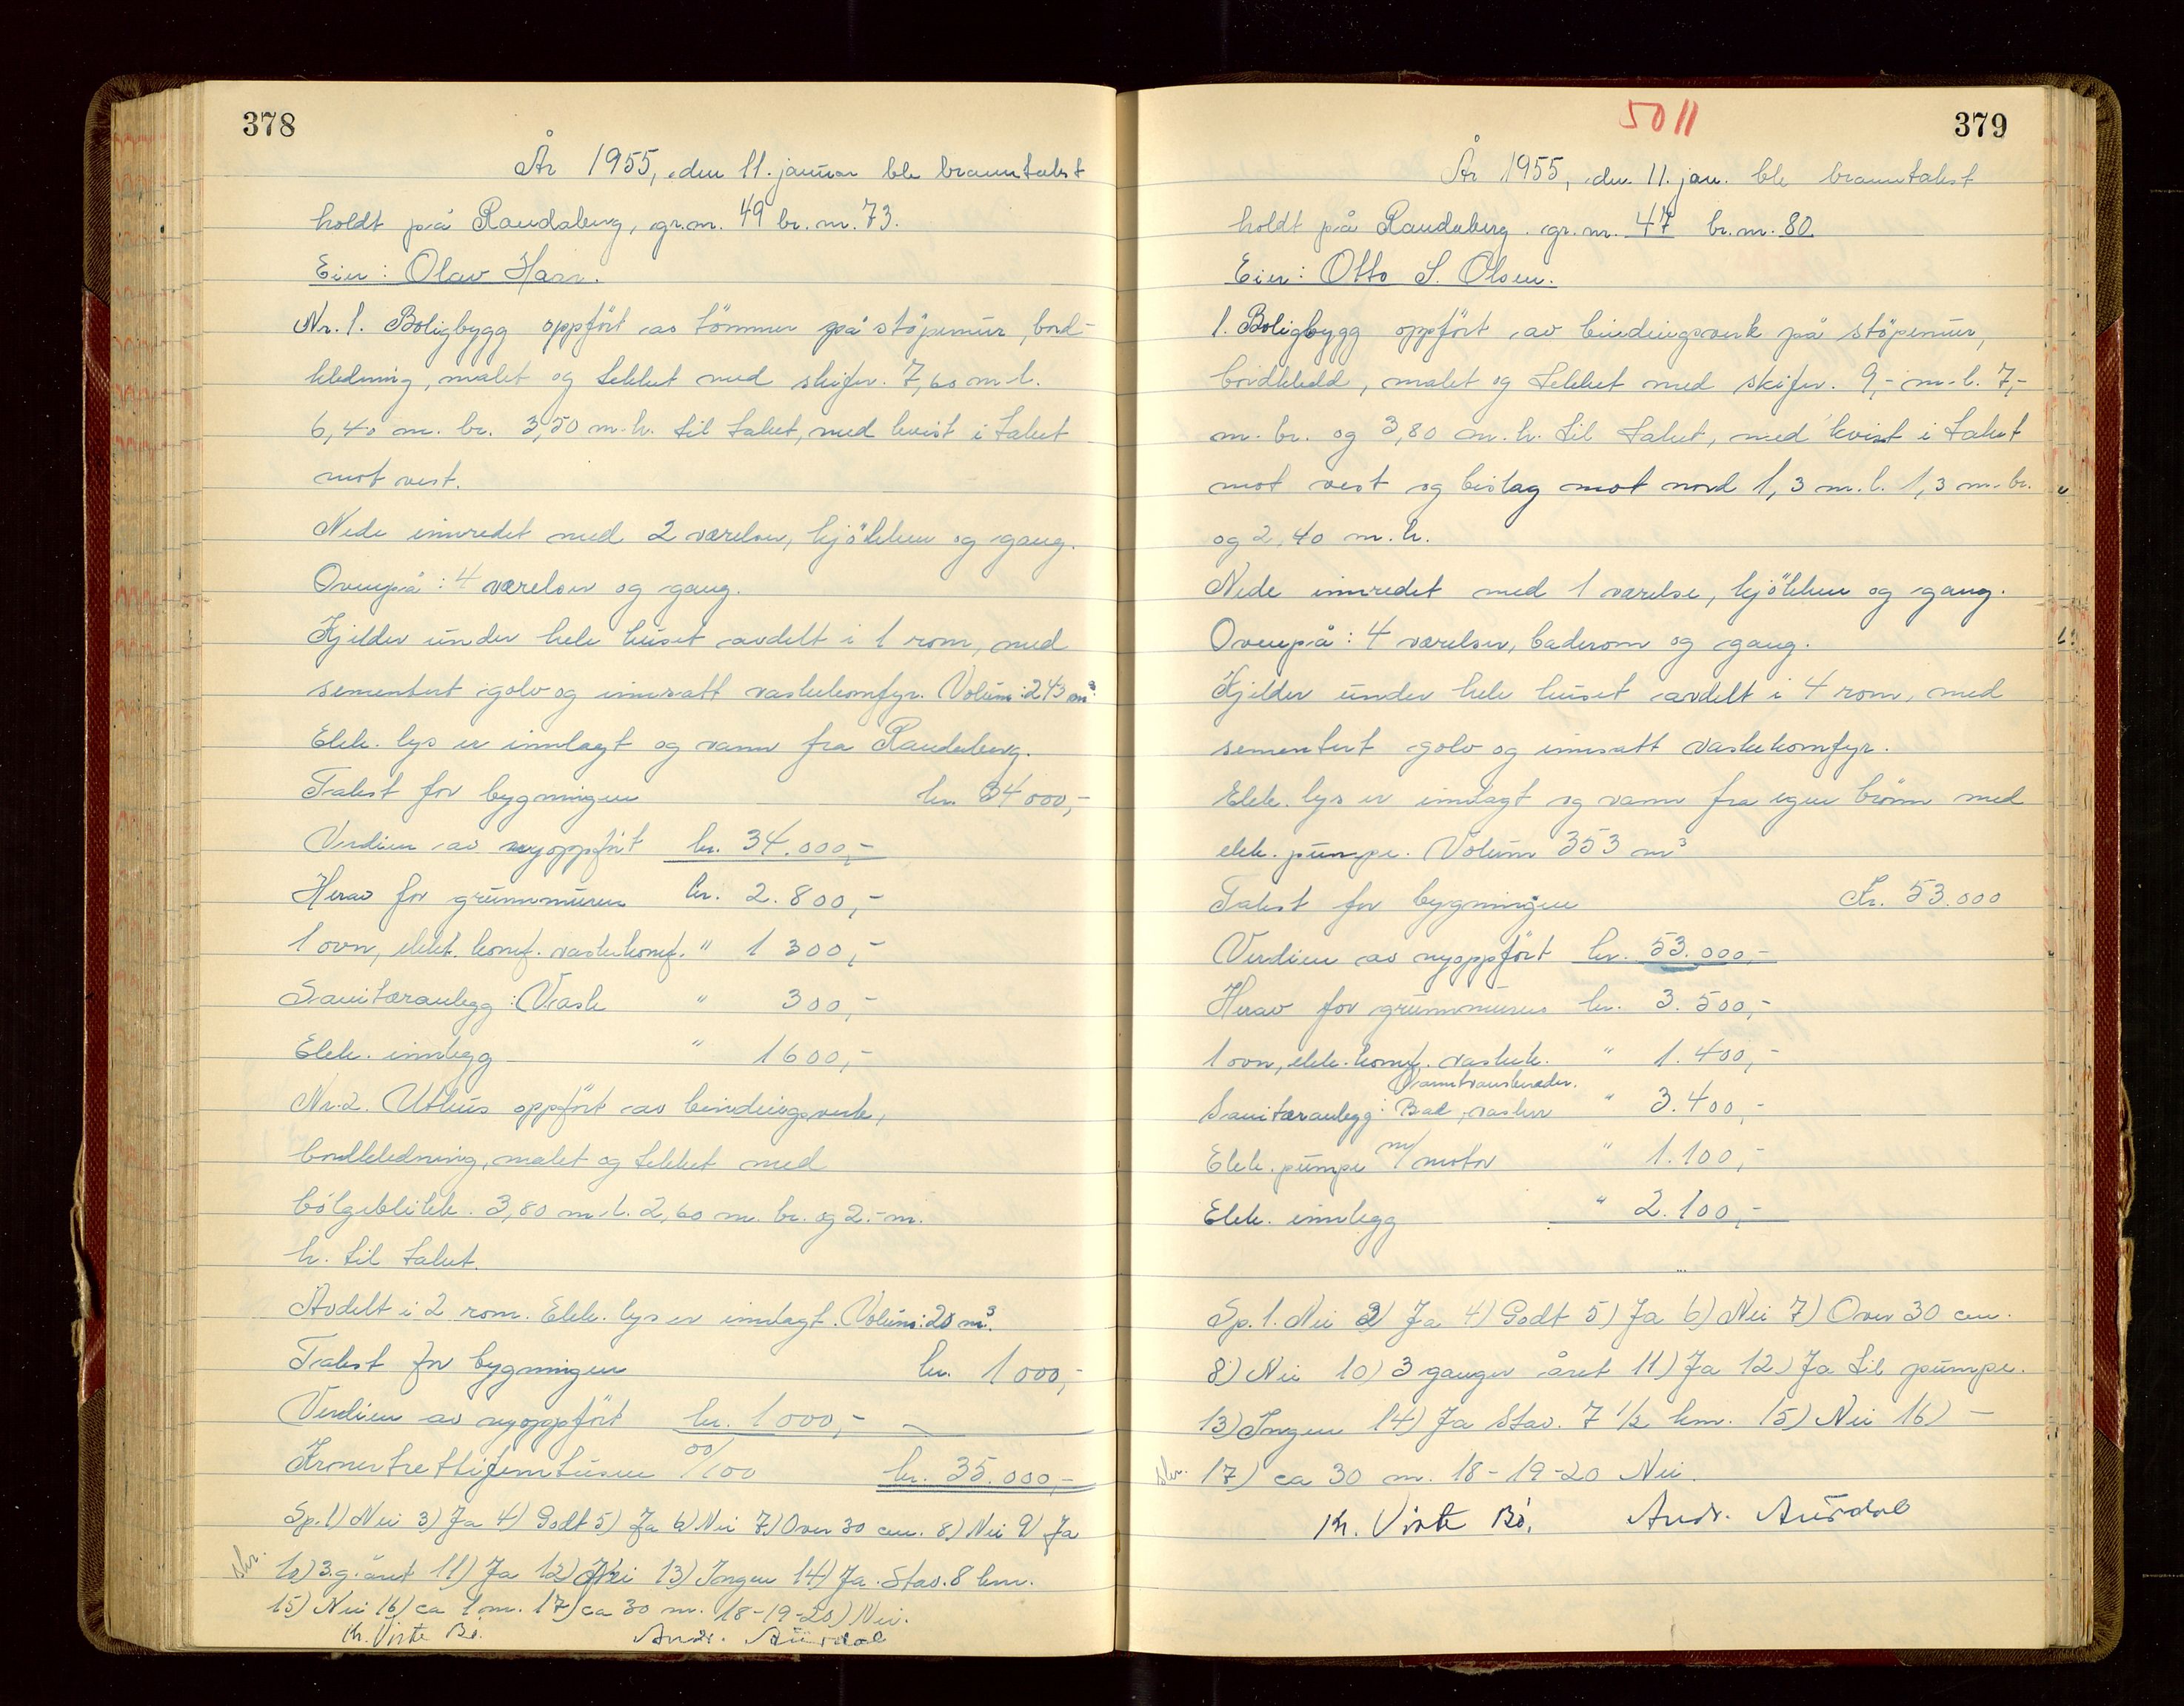 378
År 1955, den 11. januar ble branntakst
holdt på Randaberg, gr.nr. 49 br.nr. 73.
Eier: Olav Harr.
Nr. 1. Boligbygg oppfört av tömmer på stöpemur, bord-
kledning, malt og tekket med skifer. 7,60 m.l.
6,40 m. br. 3,50 m.h. til taket, med kvist i taket
mot vest.
Nede innredet med 2 værelser, kjökken og gang.
Ovenpå: 4 værelser og gang.
Kjelder under hele huset avdelt i 1 rom, med
sementert golv og innsatt vaskekomfyr. Volum: 243 m³.
Elek. lys er innlagt og vann fra Randaberg.
Takst for bygningen kr. 34 000,-
Verdien av nyoppfört kr. 34.000,-
Herav for grunnmuren kr. 2.800,-
1 ovn, elekt. komf. vaskekomf. " 1 300,-
Sanitæranlegg: Vask " 300,-
Elek. innlegg " 1600,-
Nr. 2. Uthus oppfört av bindingsverk,
bordkledning, malt og tekket med
bölgeblikk. 3,80 m.l. 2,60 m. br. og 2.- m.
h. til taket.
Avdelt i 2 rom. Elek. lys er innlagt. Volum: 20 m³.
Takst for bygningen kr. 1 000,-
Verdien av nyoppfört kr. 1 000,-
Kronertrettifemtusen 00/100 kr. 35.000,-
Sp. 1) Nei 3) Ja 4) Godt 5) Ja 6) Nei 7) Over 30 cm. 8) Nei 9) Ja
skr. 10) 3.g. året 11) Ja 12) Nei 13) Ingen 14) Ja. Stav. 8 km.
15) Nei 16) ca 1 m. 17) ca 30 m. 18-19-20) Nei.
Kr. Viste Bö. Andr. Aursdal
5011
379
År 1955, den 11. jan. ble branntakst
holdt på Randaberg. gr.nr. 47 br.nr. 80
Eier: Otto S. Olsen.
1. Boligbygg oppfört av bindingsverk på stöpemur,
bordkledd, malt og tekket med skifer. 9,- m.l. 7,-
m. br. og 3,80 m.h. til taket, med kvist i taket
mot vest og bislag mot nord 1,3 m.l. 1,3 m. br.
og 2,40 m.h.
Nede innredet med 1 værelse, kjökken og gang.
Ovenpå: 4 værelser, baderom og gang.
Kjelder under hele huset avdelt i 4 rom, med
sementert golv og innsatt vaskekomfyr.
Elek. lys er innlagt og vann fra egen brönn med
elek. pumpe. Volum 353 m³
Takst for bygningen Kr. 53.000
Verdien av nyoppfört kr. 53.000,-
Herav for grunnmuren kr. 3.500,-
1 ovn, elek. komf. vaskek. " 1.400,-
Varmtvannsbereder.
Sanitæranlegg: Bad, vasker " 3.400,-
Elek. pumpe m/motor " 1.100,-
Elek. innlegg " 2.100,-
Sp. 1. Nei 3) Ja 4) Godt 5) Ja 6) Nei 7) Over 30 cm.
8) Nei 10) 3 ganger året 11) Ja 12) Ja til pumpe.
13) Ingen 14) Ja Stav. 7 1/2 km. 15) Nei 16) -
skr. 17) ca 30 m. 18-19-20 Nei.
Kr. Viste Bö. Andr. Aursdal